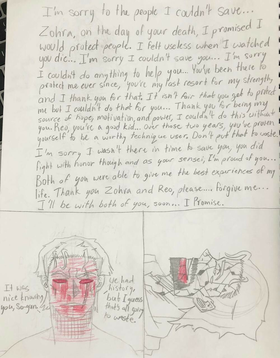 I'm sorry to the people I couldn't save...
Zohra, on the day of your death, I promised I
would protect people. I felt useless when I watched
you die... I'm sorry I couldn't save you... I'm sorry
I couldn't do anything to help you. You've been there to
protect me ever since, you're my last resort for my strength,
and I thank you for that. It isn't fair that you get to protect
me but I couldn't do that for you... Thank you for being my
source of hope, motivation, and power, I couldn't do this without
you. Reo, you're a good kid.. over these two years, you've proven
yourself to be a worthy technique user. Don't put that to waste.
I'm sorry I wasn't there in time to save you, you did
fight with honor though and as your sensei, I'm proud of you...
Both of you were able to give me the best experiences of my
life. Thank you Zohra and Reo, please... forgive me...
I'll be with both of you, soon... I Promise.
It was
nice knowing
you,
we had
history,
but I guess
that's all going
to waste.